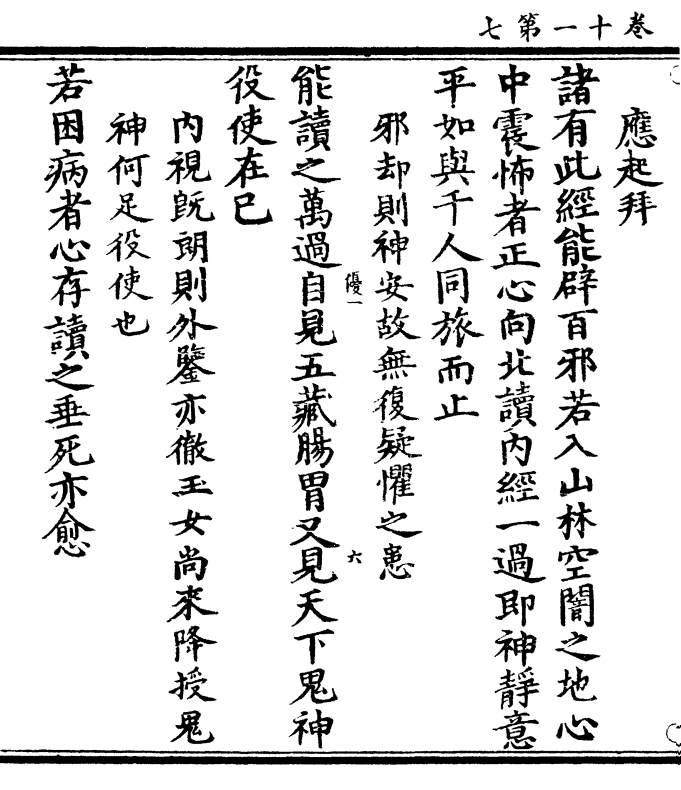 卷十一第七
應起拜
諸有此經能辟百邪若入山林空闇之地心
中震怖者正心向北讀內經一過即神靜意
平如與千人同旅而止
邪却則神安故無復疑懼之患
優一
六
能讀之萬過自見五藏腸胃又見天下鬼神
役使在已
內視旣朗則外鑒亦徹玉女尚來降授鬼
神何足役使也
若困病者心存讀之垂死亦愈